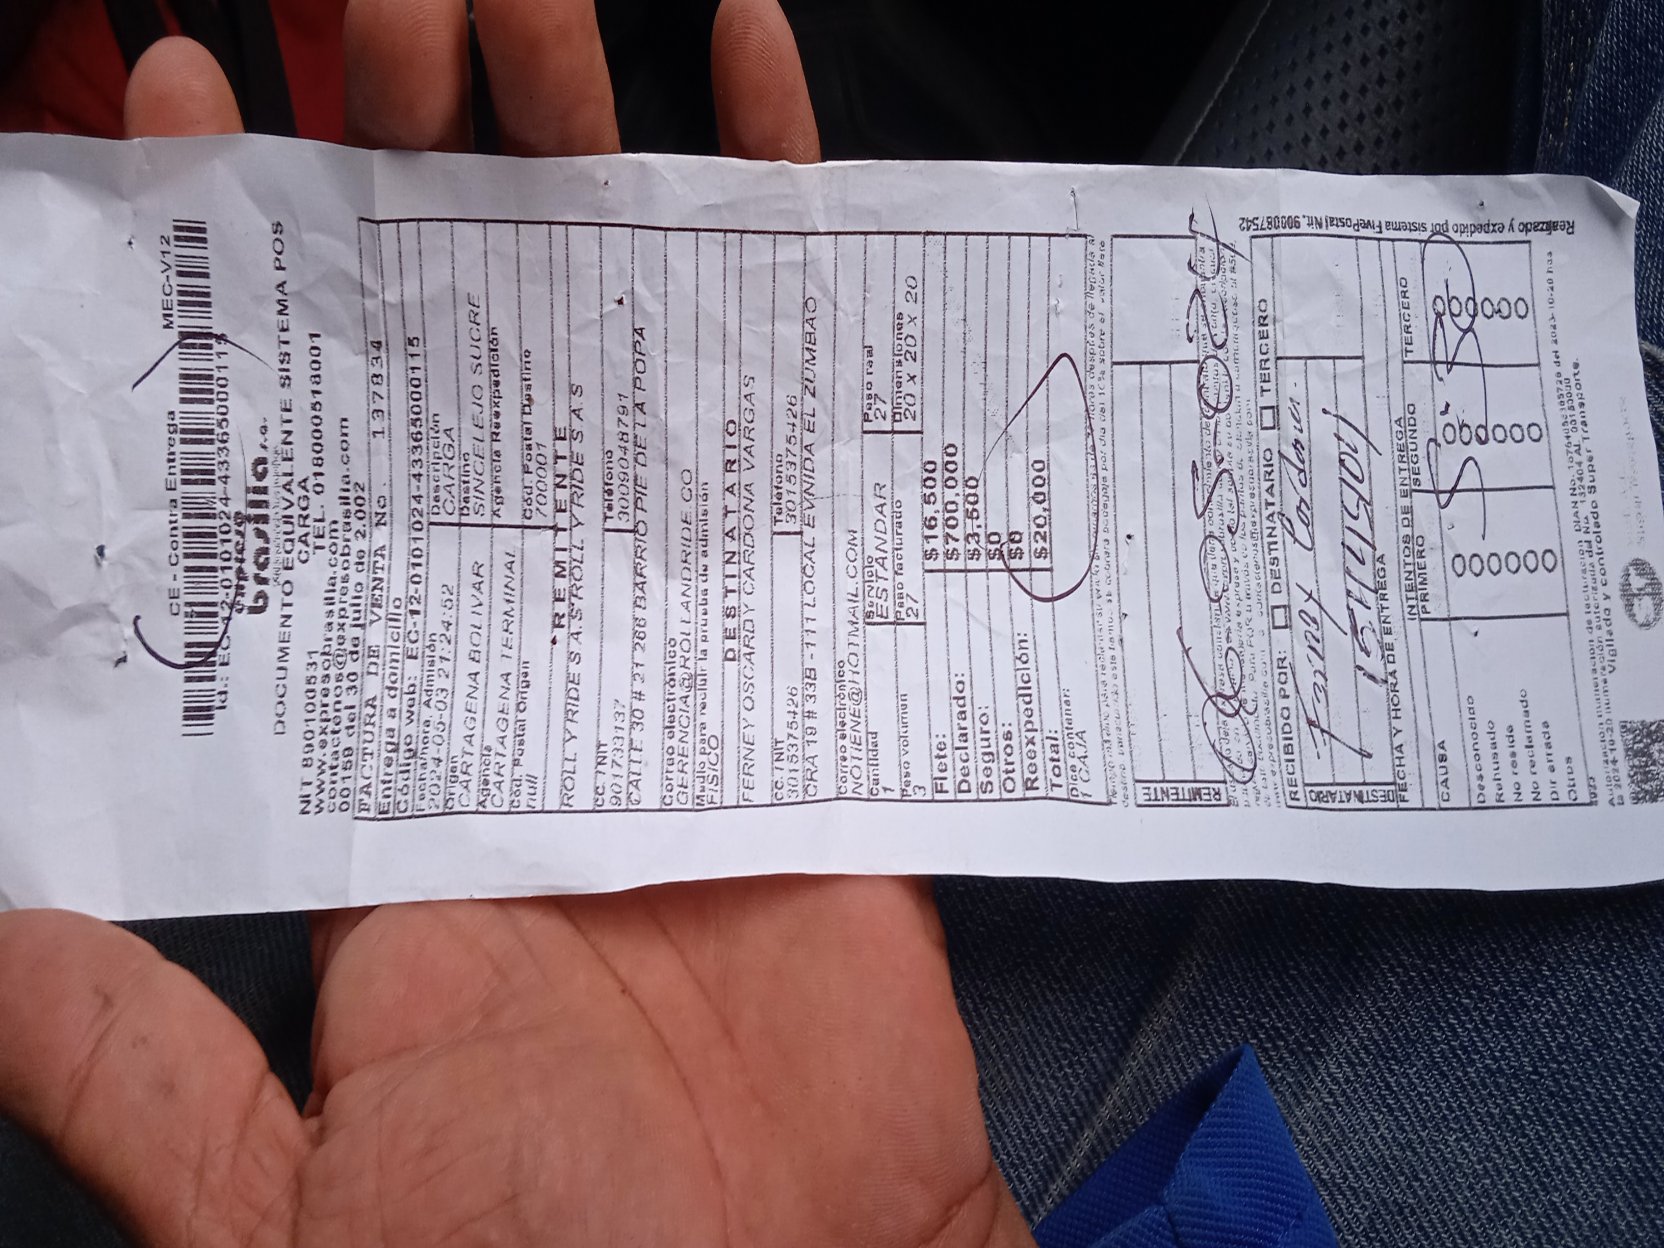 CE - Contra Entrega MEC-V12
Id.: EC-12-0101024-43365000115
expreso
brasilia s.a.
DOCUMENTO EQUIVALENTE SISTEMA POS
CARGA
NIT 890100531 TEL. 018000518001
www.expresobrasilia.com
contactenos@expresobrasilia.com
00150 del 30 de julio de 2.002
FACTURA DE VENTA No. 137834
Entrega a domicilio
Código web: EC-12-0101024-43365000115
Fecha/hora Admisión Descripción
2024-05-03 21:24:52 CARGA
Origen Destino
CARTAGENA BOLIVAR SINCELEJO SUCRE
Agencia Agencia Reexpedición
CARTAGENA TERMINAL
Cód. Postal Origen Cód. Postal Destino
null 700001
REMITENTE
ROLL Y RIDE S A S ROLL Y RIDE S A S
CC / NIT Teléfono
901793137 3009048791
CALLE 30 # 21 266 BARRIO PIE DE LA POPA
Correo electrónico
GERENCIA@ROLLANDRIDE.CO
Medio para recibir la prueba de admisión
FISICO
DESTINATARIO
FERNEY OSCARDY CARDONA VARGAS
CC / NIT Teléfono
3015375426 3015375426
CRA 19 # 33B - 111 LOCAL EVNIDA EL ZUMBAO
Correo electrónico
NOTIENE@HOTMAIL.COM
Cantidad Servicio Peso real
1 ESTANDAR 27
Peso volumen Peso facturado Dimensiones
3 27 20 x 20 x 20
Flete: $16,500
Declarado: $700,000
Seguro: $3,500
Otros: $0
Reexpedición: $0
Total: $20,000
Dice contener:
1 CAJA
REMITENTE
RECIBIDO POR: DESTINATARIO TERCERO
DESTINATARIO
FECHA Y HORA DE ENTREGA
INTENTOS DE ENTREGA
CAUSA PRIMERO SEGUNDO TERCERO
Desconocido
Rehusado
No reside
No reclamado
Dir errada
Otros
Vigilado y controlado Super Transporte.
Realizado y expedido por sistema FivePostal Nit. 900087542